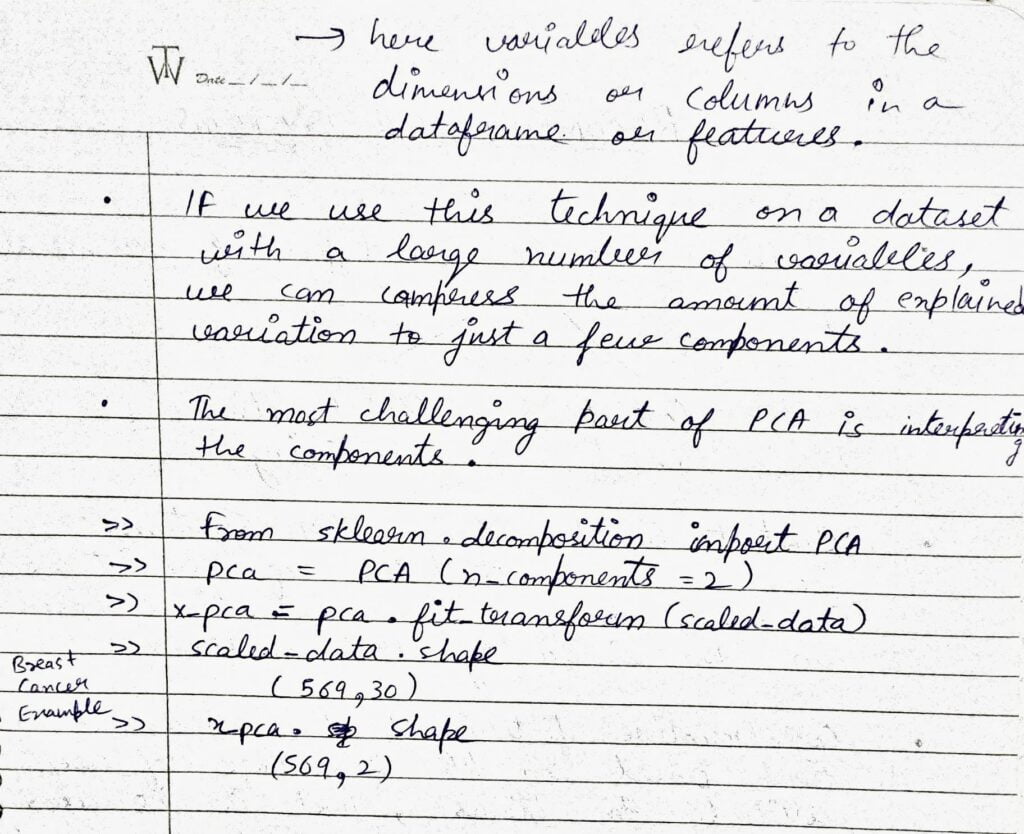 → here variables refers to the
TW Date _/_/_
dimensions or columns in a
dataframe or features.
• If we use this technique on a dataset
with a large number of variables,
we can compress the amount of explained
variation to just a few components.
• The most challenging part of PCA is interpreting
the components.
>> from sklearn.decomposition import PCA
>> pca = PCA (n_components = 2)
>> x_pca = pca.fit_transform (scaled_data)
>> scaled_data.shape
Breast
Cancer
Example
(569,30)
>> x_pca. shape
(569,2)